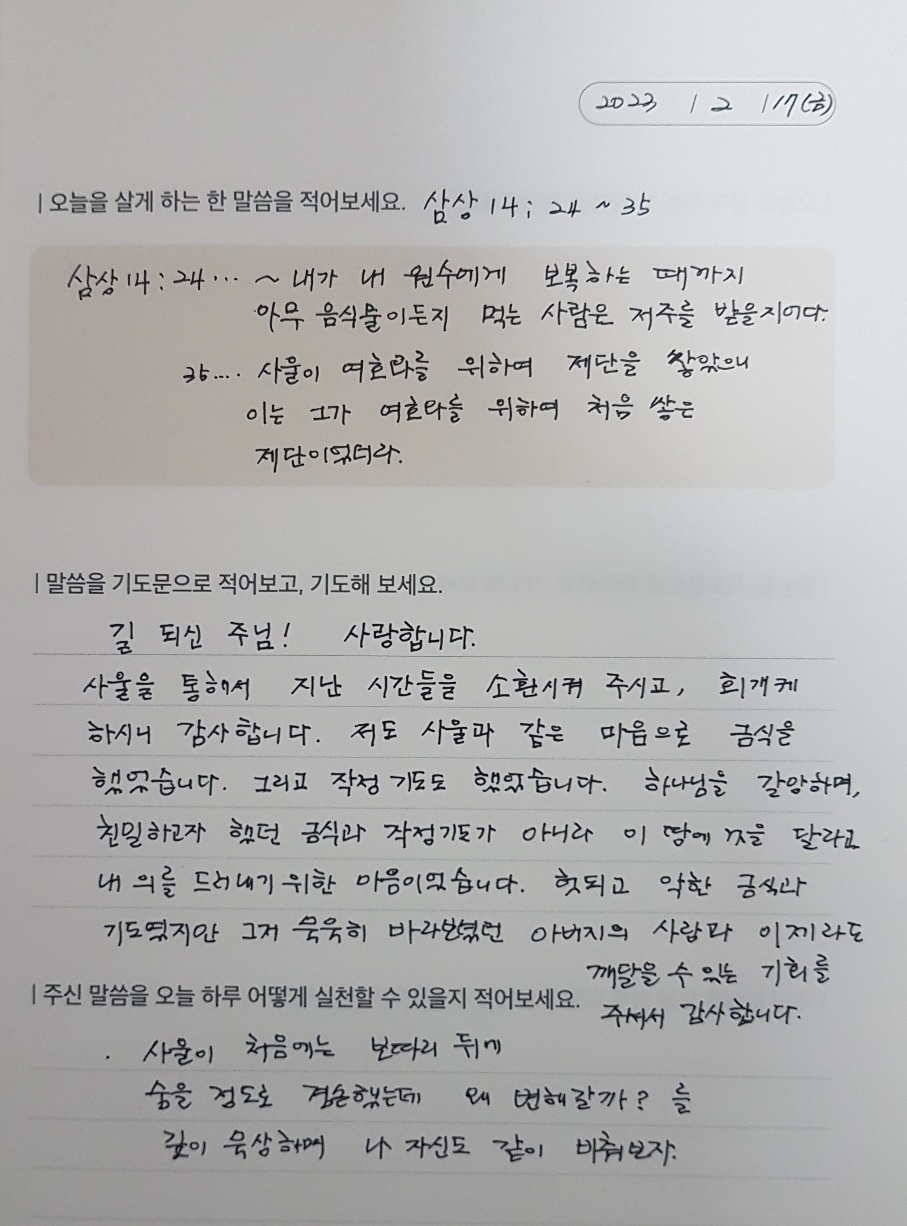 2023 / 2 / 17(금)
| 오늘을 살게 하는 한 말씀을 적어보세요. 삼상 14; 24 ~ 35
삼상 14 : 24 ··· ~ 내가 내 원수에게 보복하는 때까지
아무 음식물이든지 먹는 사람은 저주를 받을지어다.
35 .... 사울이 여호와를 위하여 제단을 쌓았으니
이는 그가 여호와를 위하여 처음 쌓은
제단이었더라.
| 말씀을 기도문으로 적어보고, 기도해 보세요.
길 되신 주님! 사랑합니다.
사울을 통해서 지난 시간들을 소환시켜 주시고, 회개케
하시니 감사합니다. 저도 사울과 같은 마음으로 금식을
했었습니다. 그리고 작정 기도도 했었습니다. 하나님을 갈망하며,
친밀하고자 했던 금식과 작정기도가 아니라 이 땅에 것을 달라고
내 의를 드러내기 위한 마음이었습니다. 헛되고 악한 금식과
기도였지만 그저 묵묵히 바라보셨던 아버지의 사랑과 이제라도
깨달을 수 있는 기회를
주셔서 감사합니다.
| 주신 말씀을 오늘 하루 어떻게 실천할 수 있을지 적어보세요.
. 사울이 처음에는 보따리 뒤에
숨을 정도로 겸손했는데 왜 변해갈까? 를
깊이 묵상하며 나 자신도 같이 비춰보자.